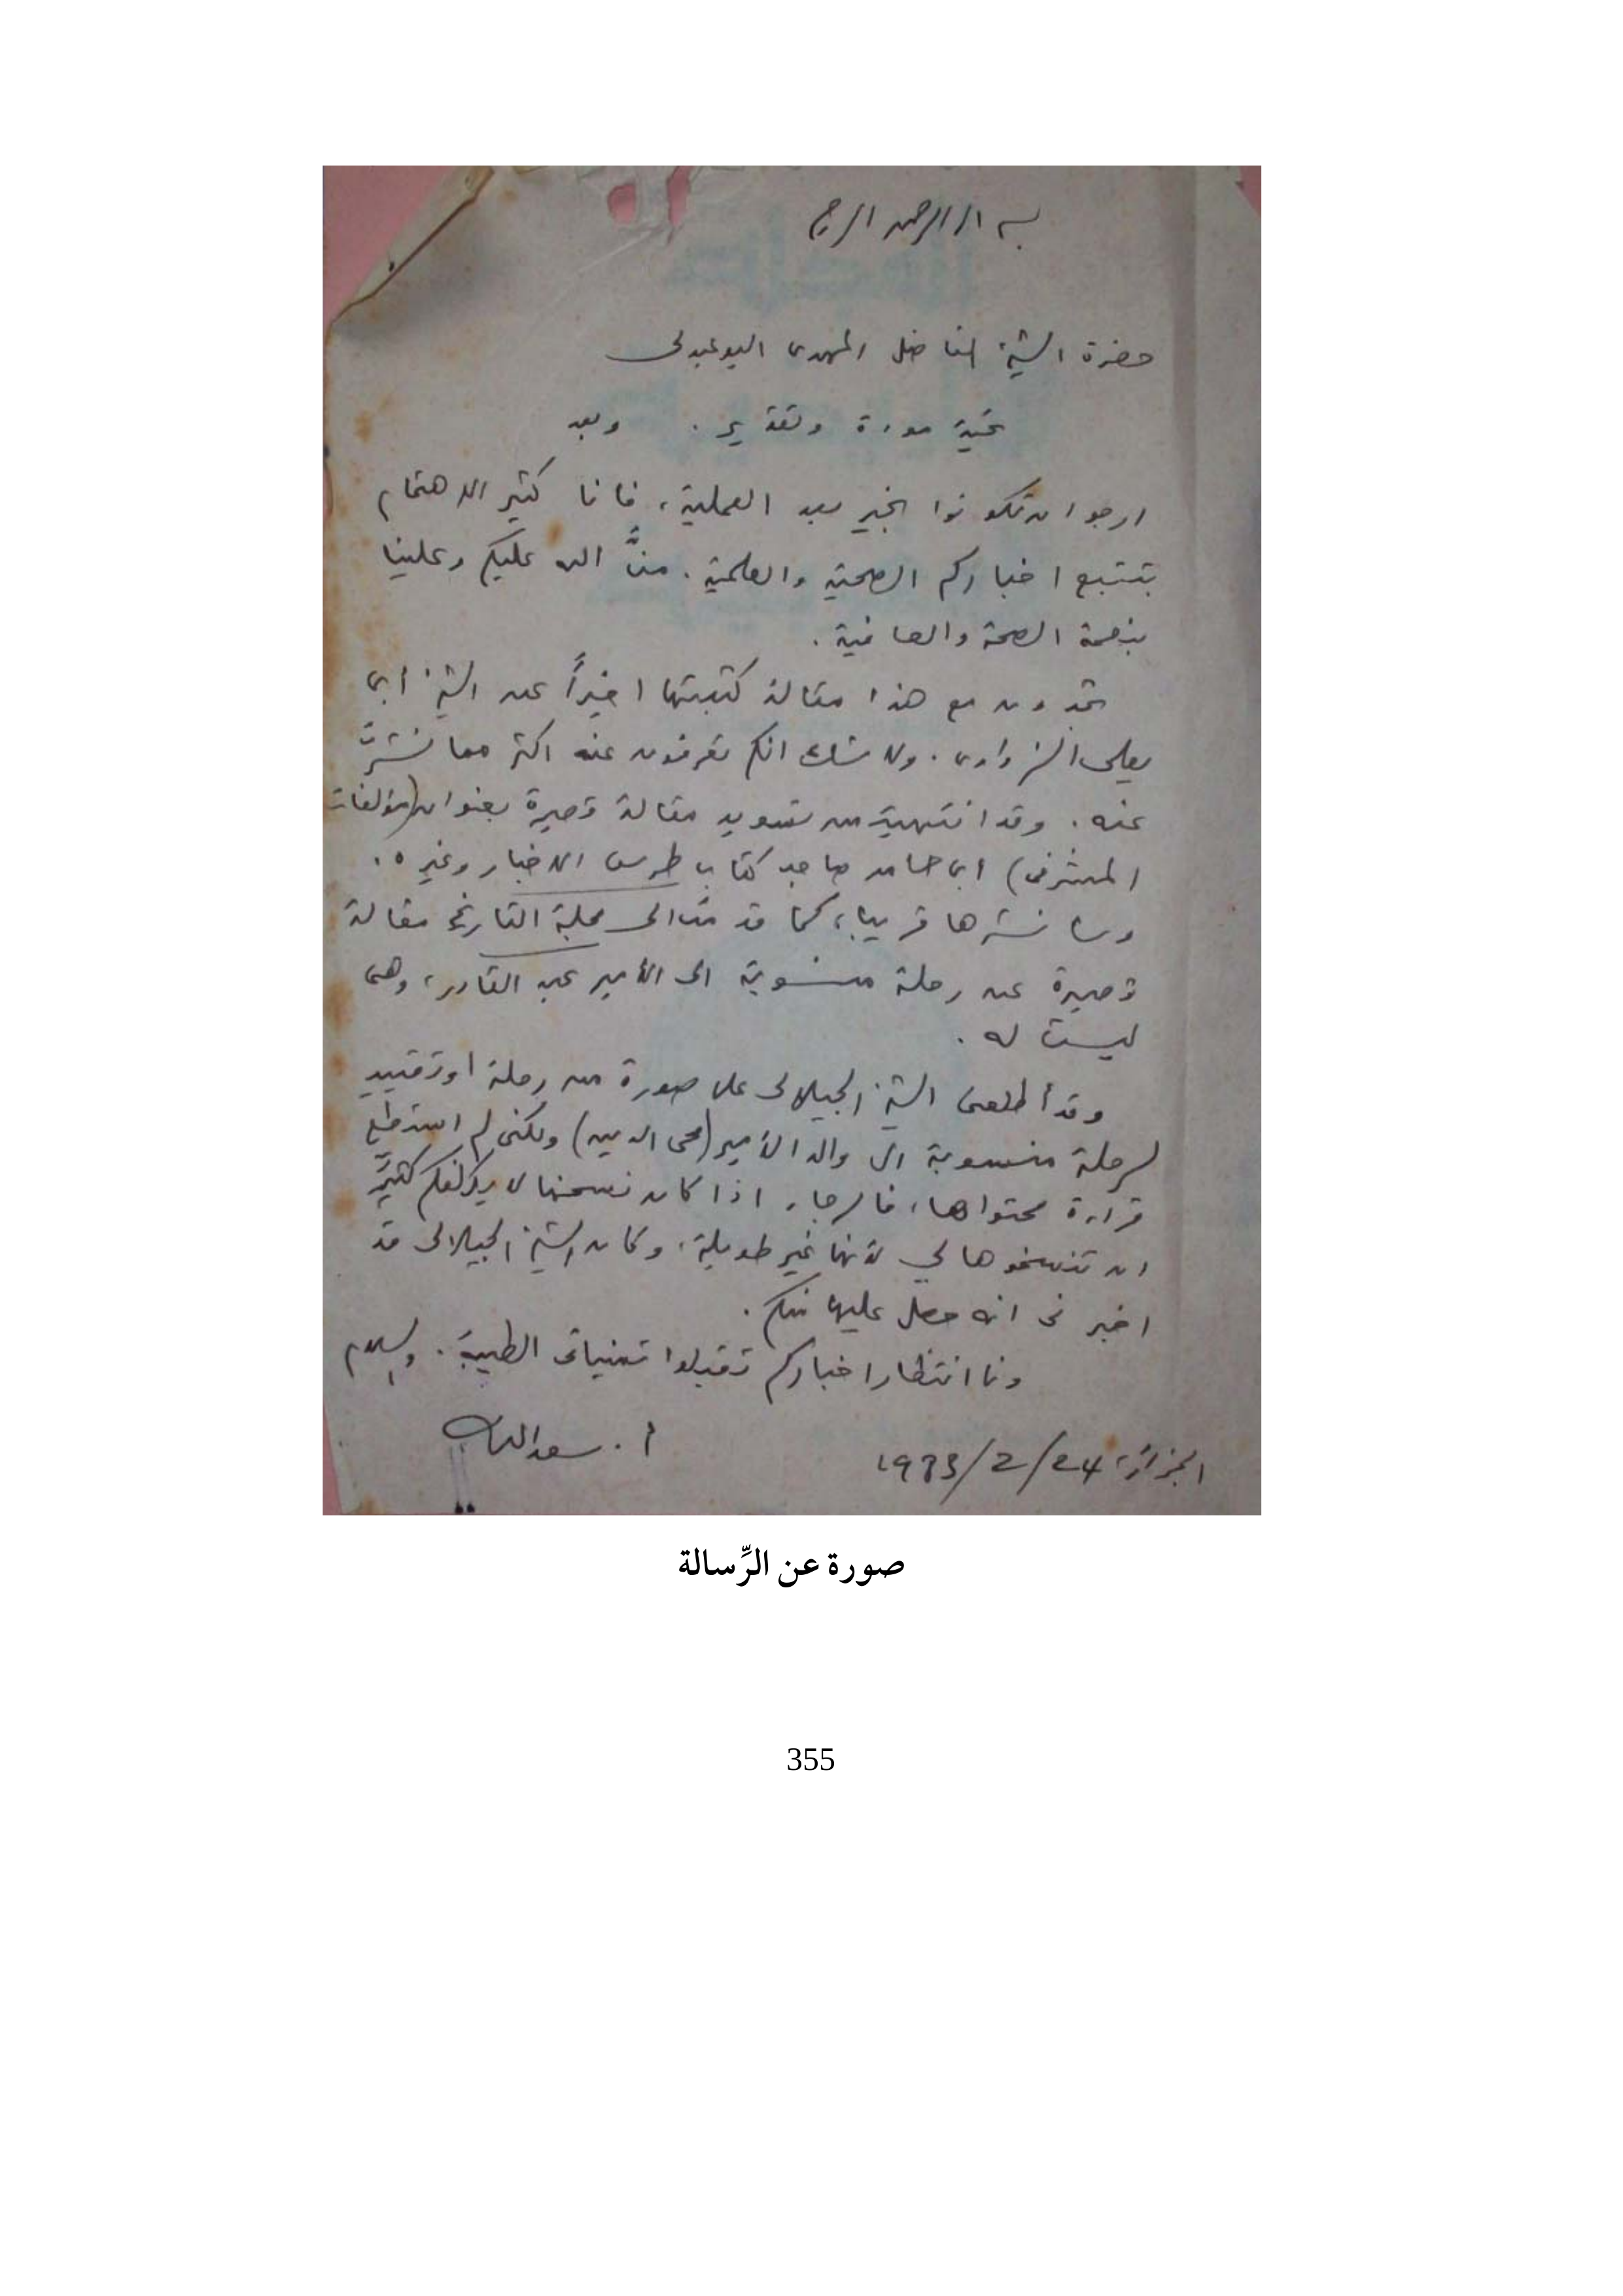 بسم الله الرحمن الرحيم
حضرة الشيخ الفاضل المهدي البوعبدلي
تحية مودة وتقدير. وبعد
ارجو ان تكونوا بخير بعد العملية، فانا كثير الاهتمام
بتتبع اخباركم الصحية والعلمية. منَّ الله عليكم وعلينا
بنعمة الصحة والعافية.
تجدون مع هذا مقالة كتبتها اخيراً عن الشيخ ابي
يعلى الزواوي. ولا شك انكم تعرفون عنه اكثر مما نشرتُ
عنه. وقد انتهيت من تسويد مقالة قصيرة بعنوان (مؤلفات
المشرفي) ابي حامد صاحب كتاب طرس الاخبار وغيره.
وسأنشرها قريبا، كما قدمت الى مجلة التاريخ مقالة
قصيرة عن رحلة منسوبة الى الأمير عبد القادر، وهي
ليست له.
وقد أطلعني الشيخ الجيلالي على صورة من رحلة او تقييد
لرحلة منسوبة الى والد الأمير (محي الدين) ولكني لم استطع
قراءة محتواها، فالرجاء اذا كان نسخها لا يكلفكم كثيرً
ان تنسخوها لي لأنها غير طويلة، وكان الشيخ الجيلالي قد
اخبرني انه حصل عليها منكم.
وفي انتظار اخباركم تقبلوا تمنياتي الطيبة. والسلام
أ. سعد الله
الجزائر، 24/2/1983
صورة عن الرِّسالة
355